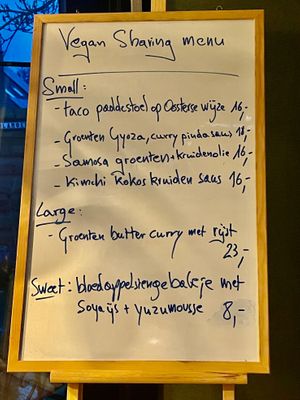 Vegan Sharing menu
Small:
- taco paddestoel op Oosterse wijze 16,-
- Groenten Gyoza, curry pindasaus 18,-
- Samosa groenten + kruidenolie 16,-
- Kimchi Kokos kruiden saus 16,-
Large:
- Groenten butter curry met rijst
23,-
Sweet: bloedappelstengebakje met
Soya ijs + yuzumousse 8,-